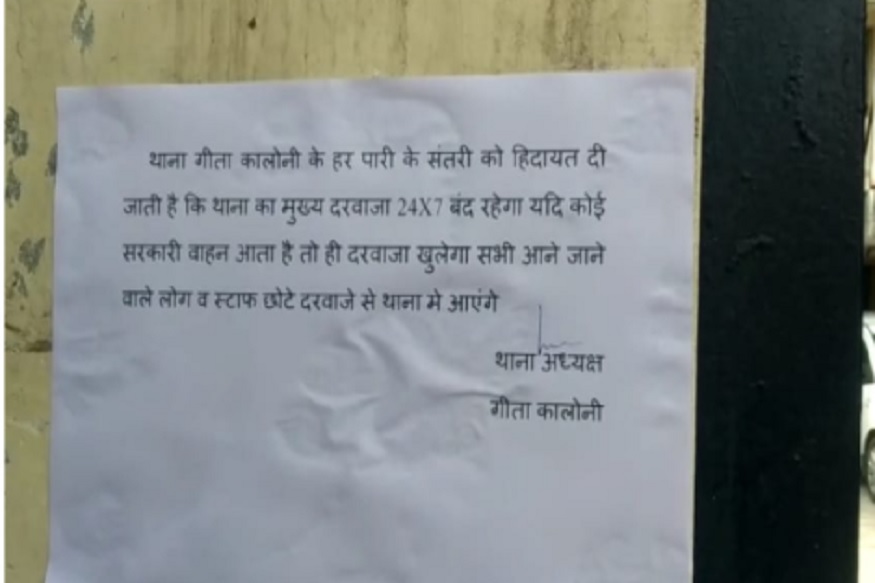 थाना गीता कालोनी के हर पारी के संतरी को हिदायत दी
जाती है कि थाना का मुख्य दरवाजा 24X7 बंद रहेगा यदि कोई
सरकारी वाहन आता है तो ही दरवाजा खुलेगा सभी आने जाने
वाले लोग व स्टाफ छोटे दरवाजे से थाना मे आएंगे
थाना अध्यक्ष
गीता कालोनी